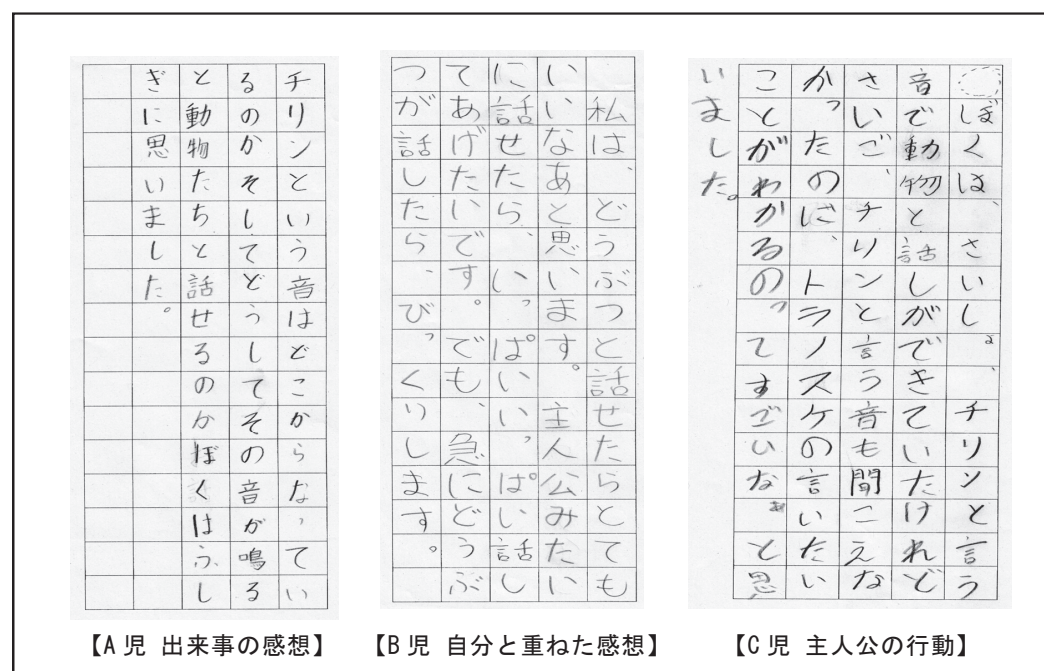 チリンという音はどこからなってい
るのかそしてどうしてその音が鳴る
と動物たちと話せるのかぼくはふし
ぎに思いました。
【A児 出来事の感想】
私は、どうぶつと話せたらとても
いいなあと思います。主人公みたい
に話せたら、いっぱいいっぱい話し
てあげたいです。でも、急にどうぶ
つが話したら、びっくりします。
【B児 自分と重ねた感想】
ぼくは、さいしょ、チリンと言う
音で動物と話しができていたけれど
さいご、チリンと言う音も聞こえな
かったのに、トラノスケの言いたい
ことがわかるのってすごいなあと思
いました。
【C児 主人公の行動】